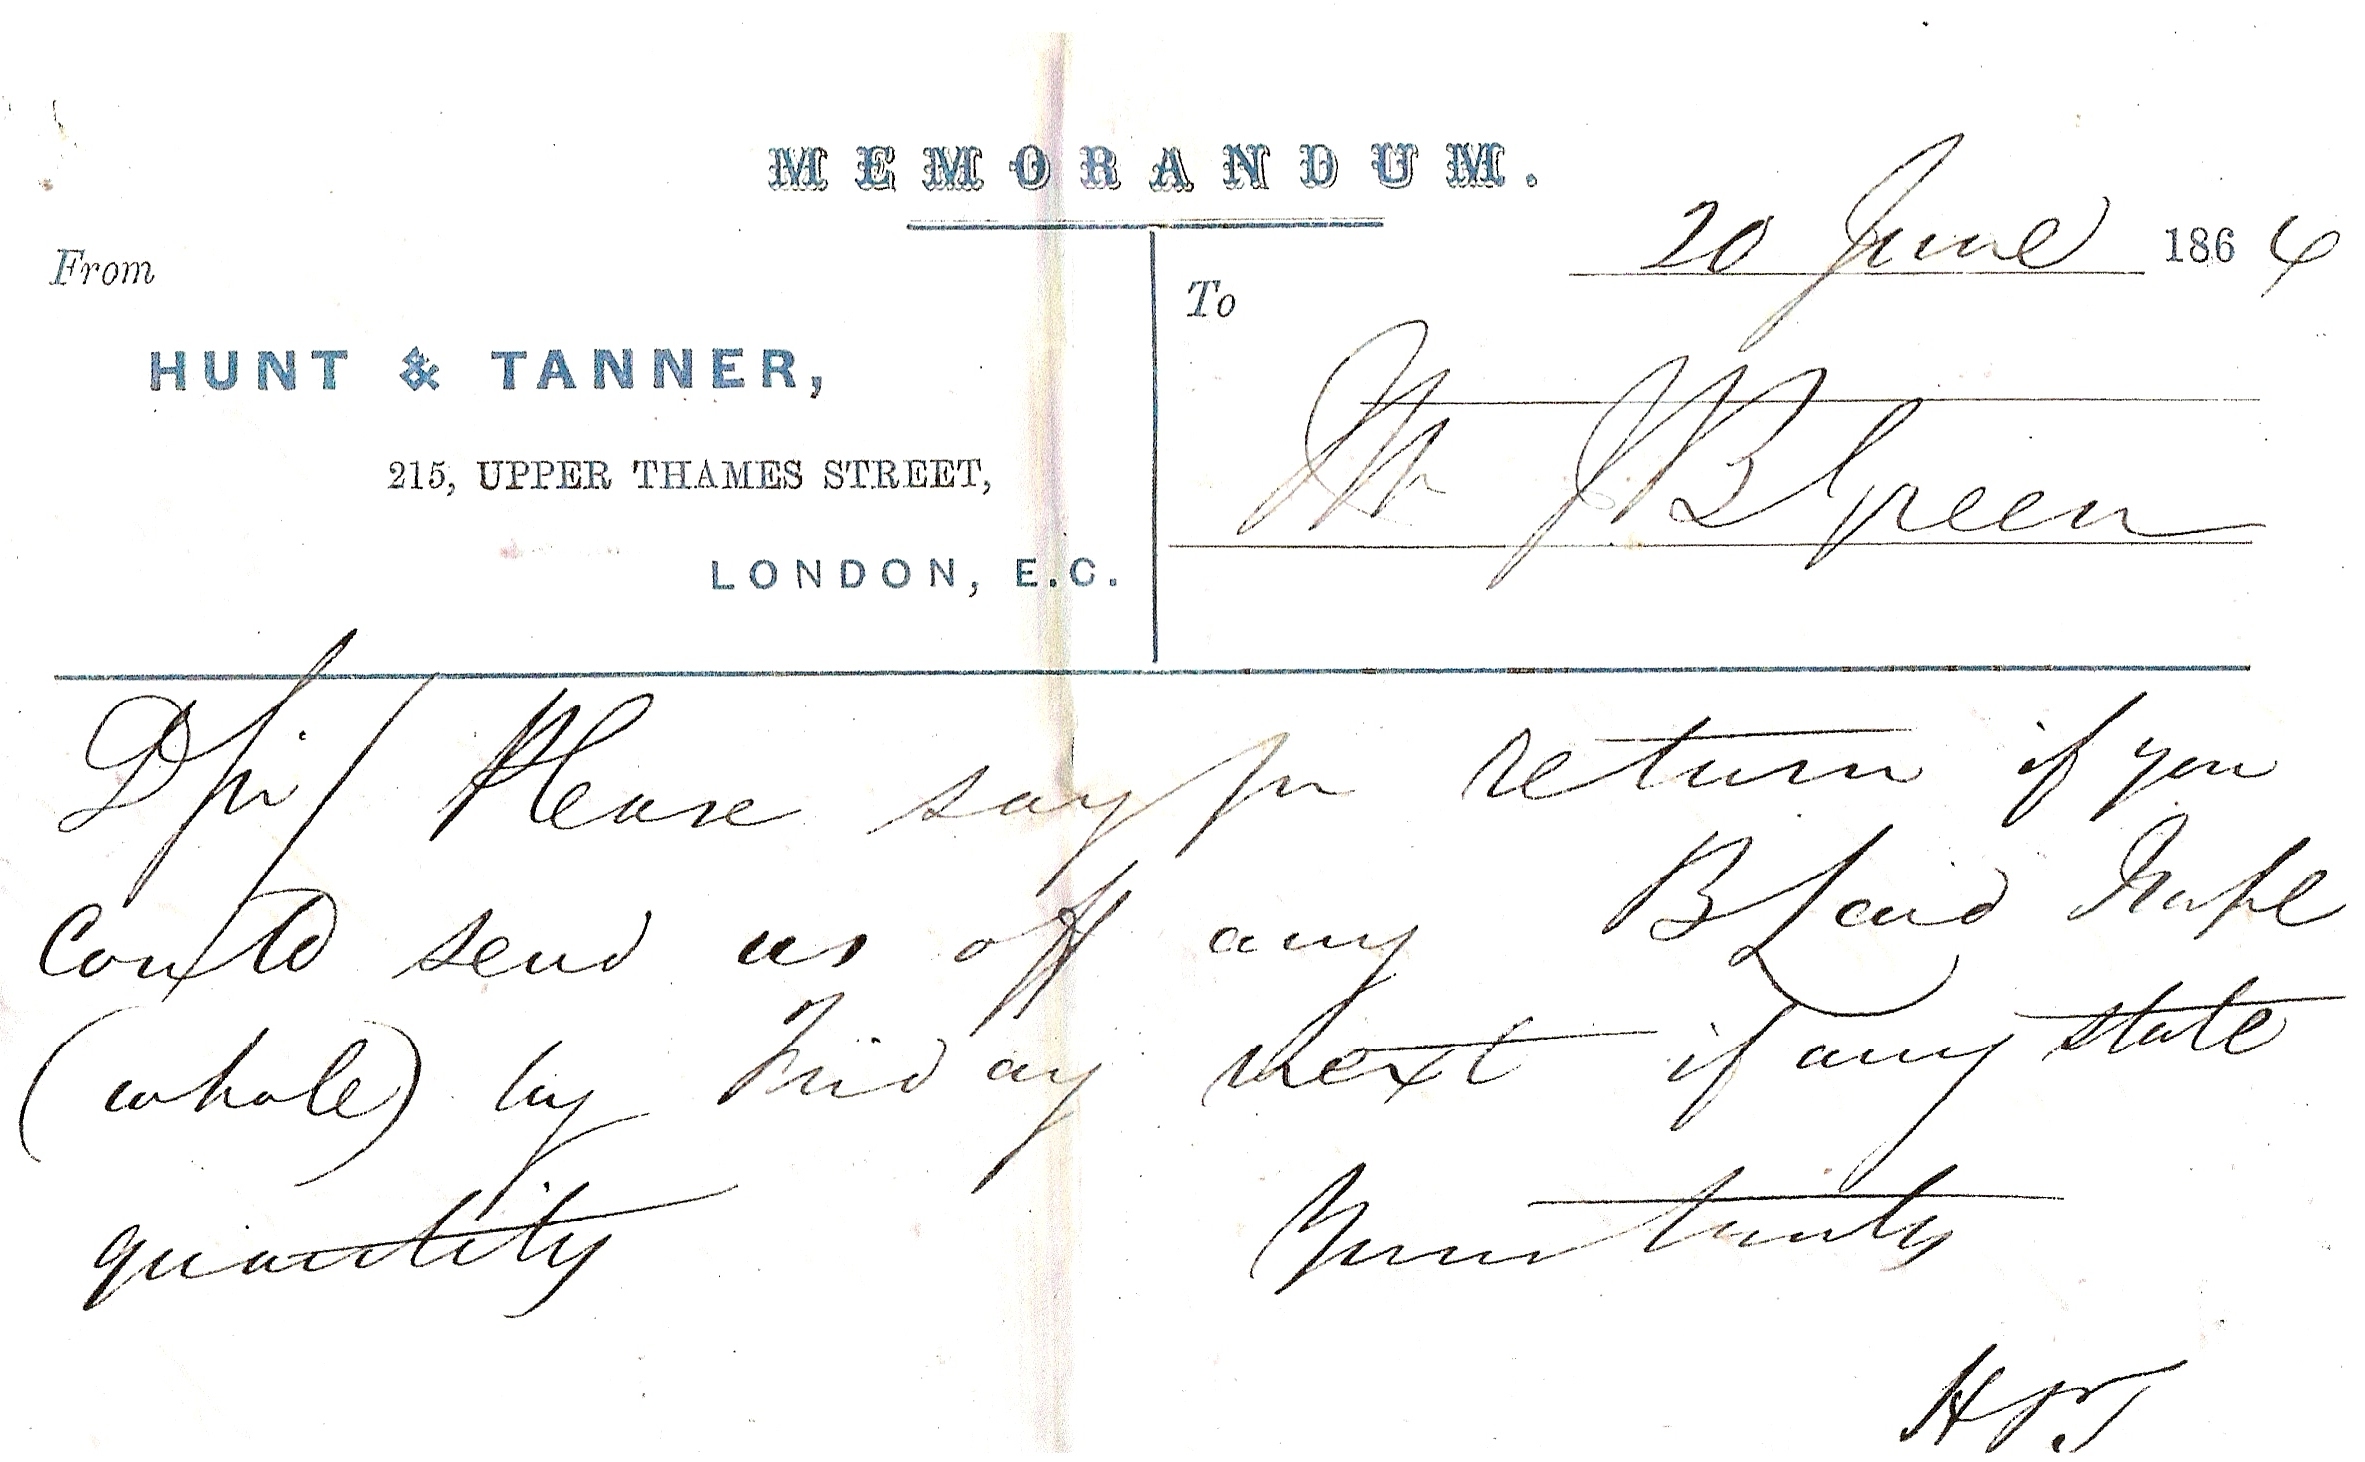 MEMORANDUM.
20 June 1864
From
To
HUNT & TANNER,
215, UPPER THAMES STREET,
LONDON, E.C.
Mr J B Green
D Sir/ Please say pr return if you
Could send us off any B Laid
(whole) by Friday next if any state
quantity
Yours truly
H & T